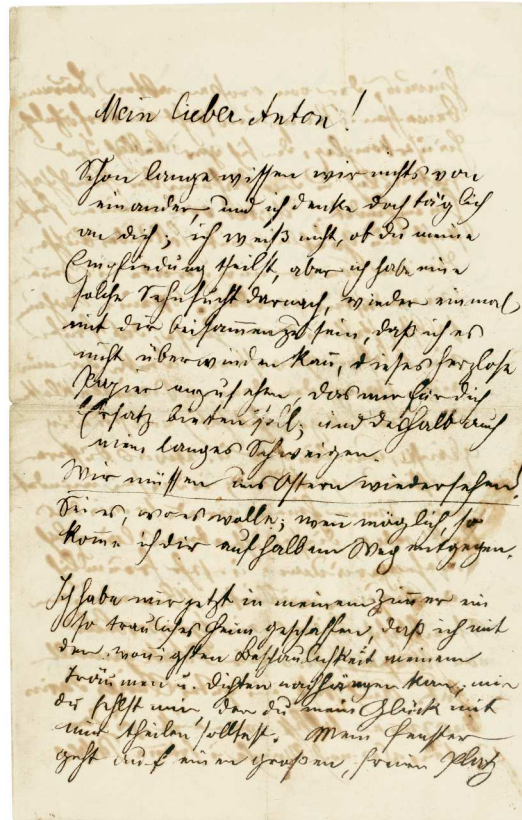 Mein lieber Anton!
Schon lange wissen wir nichts von
einander, und ich denke doch täglich
an dich; ich weiß nicht, ob du meine
Empfindung theilst, aber ich habe eine
solche Sehnsucht darnach, wieder einmal
mit dir beisammen zu sein, daß ich es
nicht überwinden kann, dieses herzlose
Papier anzusehen, das mir für dich
Ersatz bieten soll; und deshalb auch
mein langes Schweigen.
Wir müssen uns Ostern wiedersehen!
Sei es, wo es wolle; wenn möglich, so
komme ich dir auf halbem Weg entgegen.
Ich habe mir jetzt in meinem Zimmer ein
so trauliches Heim geschaffen, daß ich mit
der wonnigsten Beschaulichkeit meinem
Träumen u. Dichten nachhängen kann, nur
du fehlst mir, der du mein Glück mit
mir theilen solltest. Mein Fenster
geht auf einen großen, freien Platz